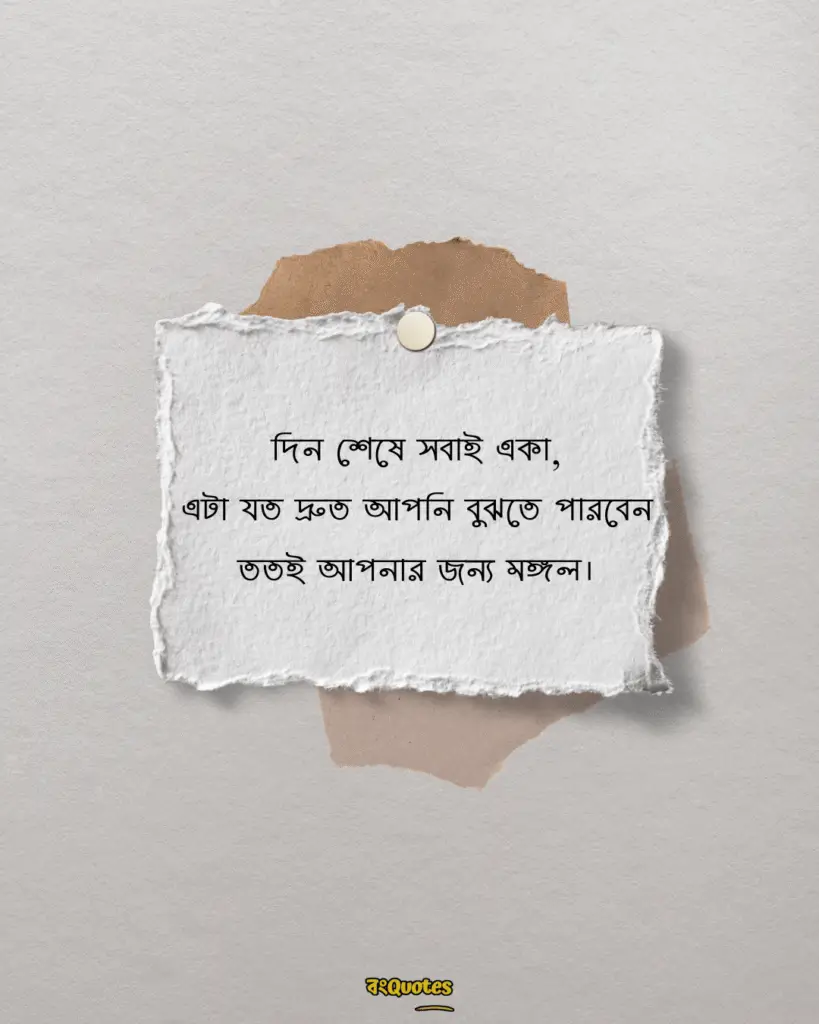 দিন শেষে সবাই একা,
এটা যত দ্রুত আপনি বুঝতে পারবেন
ততই আপনার জন্য মঙ্গল।
বংQuotes